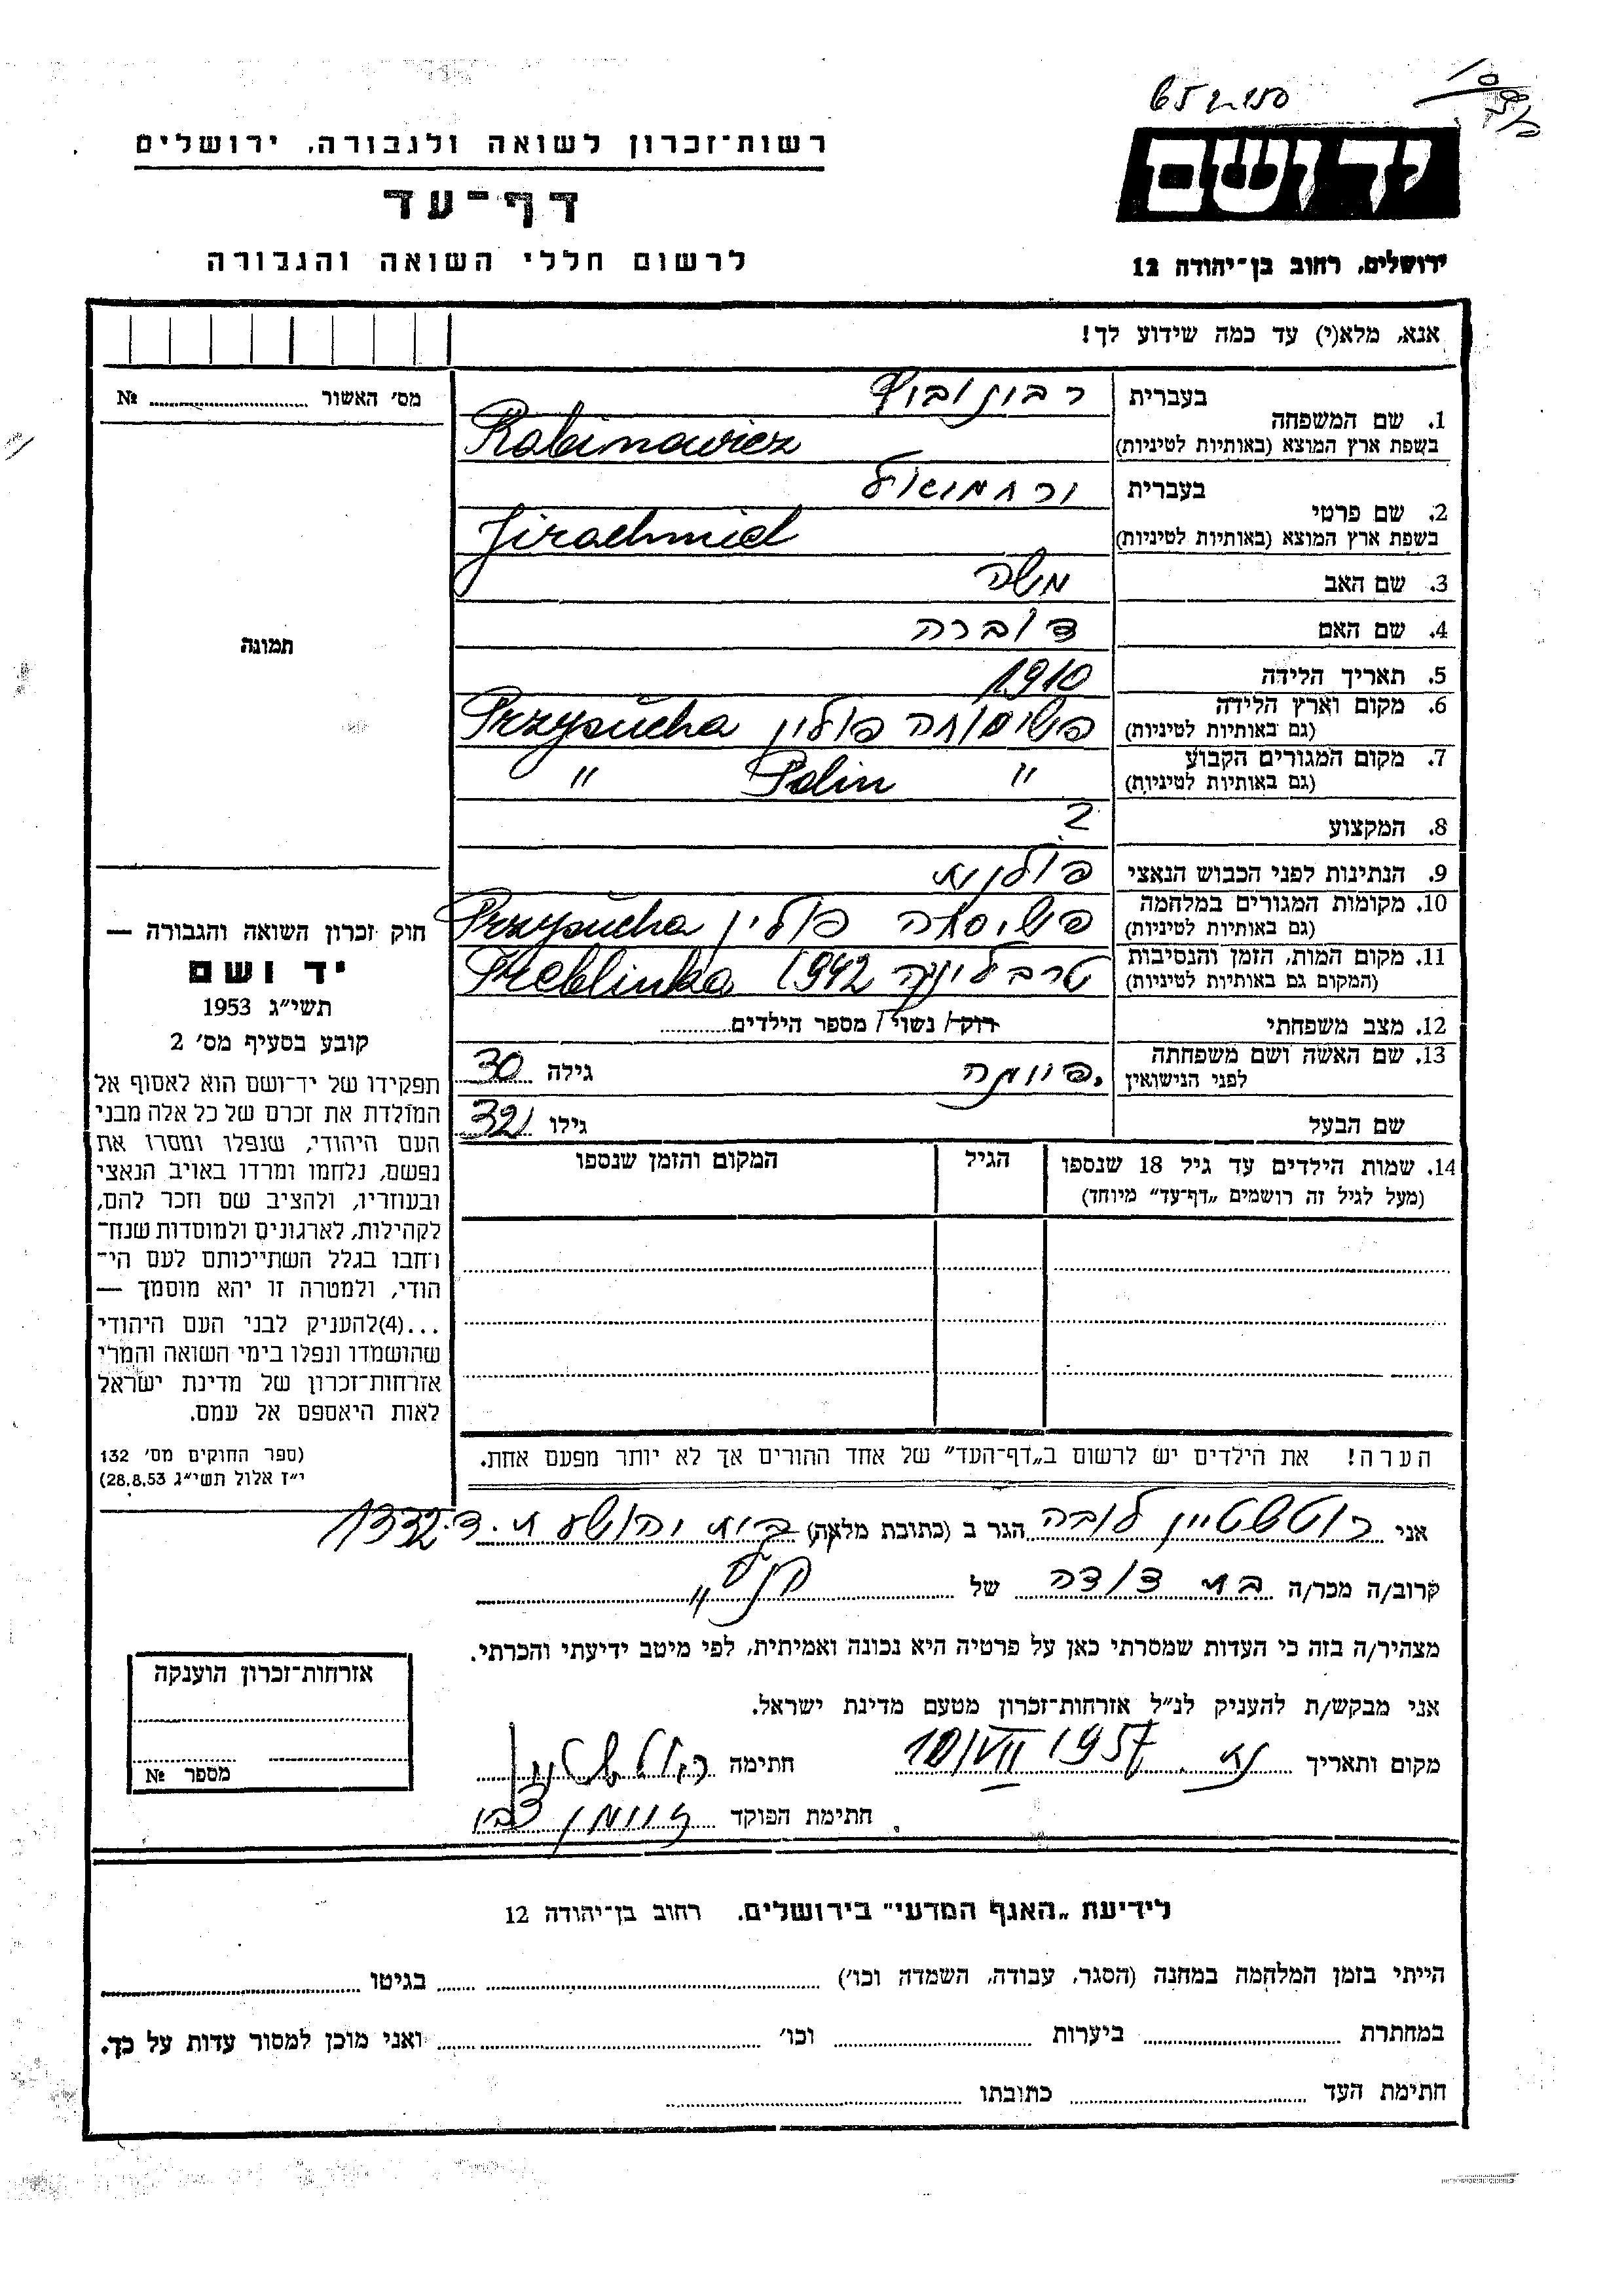 רשות־זכרון לשואה ולגבורה, ירושלים
דף־עד
לרשום חללי השואה והגבורה
ידושם
ירושלים, רחוב בן־יהודה 12
אנא, מלא(י) עד כמה שידוע לך!
מס' האשור № ........
תמונה
1. שם המשפחה
בעברית רבינוביץ
בשפת ארץ המוצא (באותיות לטיניות) Rabinowicz
2. שם פרטי
בעברית ירחמיאל
בשפת ארץ המוצא (באותיות לטיניות) Jirachmiel
3. שם האב משה
4. שם האם דוברה
5. תאריך הלידה 1910
6. מקום וארץ הלידה (גם באותיות לטיניות) פשיסוחה פולין Przysucha
7. מקום המגורים הקבוע (גם באותיות לטיניות) " Polin "
8. המקצוע ?
9. הנתינות לפני הכבוש הנאצי פולנית
10. מקומות המגורים במלחמה (גם באותיות לטיניות) פשיסחה פולין Przysucha
11. מקום המות, הזמן והנסיבות (המקום גם באותיות לטיניות) טרבלינקה 1942 Treblinka
12. מצב משפחתי רוק/ נשוי/ מספר הילדים........
13. שם האשה ושם משפחתה לפני הנישואין גילה 30
שם הבעל גילו 32
14. שמות הילדים עד גיל 18 שנספו (מעל לגיל זה רושמים „דף־עד" מיוחד)
הגיל
המקום והזמן שנספו
חוק זכרון השואה והגבורה —
יד ושם
תשי"ג 1953
קובע בסעיף מס' 2
תפקידו של יד־ושם הוא לאסוף אל
המולדת את זכרם של כל אלה מבני
העם היהודי, שנפלו ומסרו את
נפשם, נלחמו ומרדו באויב הנאצי
ובעוזריו, ולהציב שם וזכר להם,
לקהילות, לארגונים ולמוסדות שנח־
רבו בגלל השתייכותם לעם הי־
הודי, ולמטרה זו יהא מוסמך —
...(4)להעניק לבני העם היהודי
שהושמדו ונפלו בימי השואה והמרי
אזרחות־זכרון של מדינת ישראל
לאות היאספם אל עמם.
(ספר החוקים מס' 132
י"ז אלול תשי"ג 28.8.53)
הערה! את הילדים יש לרשום ב„דף־העד" של אחד ההורים אך לא יותר מפעם אחת.
אני רוטשטיין לובה הגר ב (כתובת מלאה) בית יהושע ת.ד. 1332
קרוב/ה מכר/ה בת דודה של
מצהיר/ה בזה כי העדות שמסרתי כאן על פרטיה היא נכונה ואמיתית, לפי מיטב ידיעתי והכרתי.
אני מבקש/ת להעניק לנ"ל אזרחות־זכרון מטעם מדינת ישראל.
מקום ותאריך 10/VII 1957 חתימה
חתימת הפוקד
אזרחות־זכרון הוענקה
מספר №
לידיעת „האגף המדעי" בירושלים. רחוב בן־יהודה 12
הייתי בזמן המלחמה במחנה (הסגר, עבודה, השמדה וכו') ........ בגיטו ........
במחתרת ........ ביערות ........ וכו' ........ ואני מוכן למסור עדות על כך.
חתימת העד ........ כתובתו ........